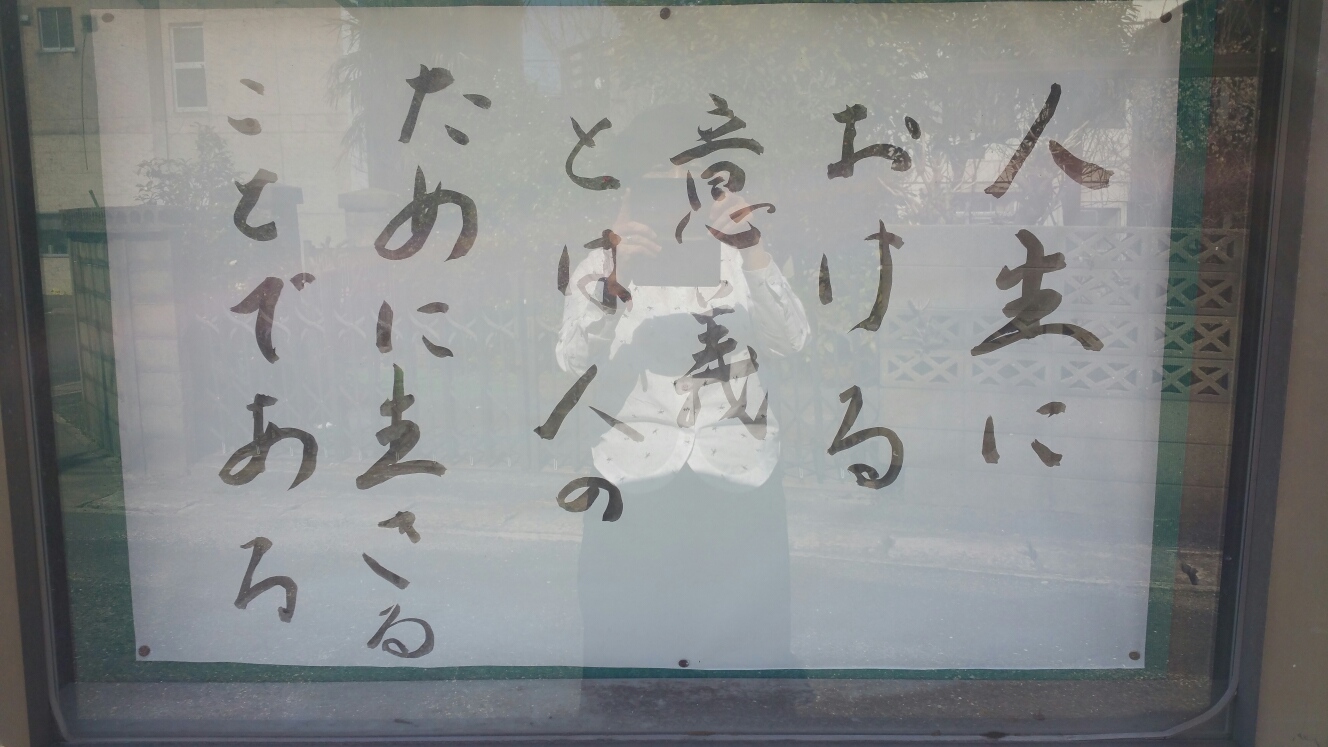 人生に
おける
意義
とは人の
ために生きる
ことである